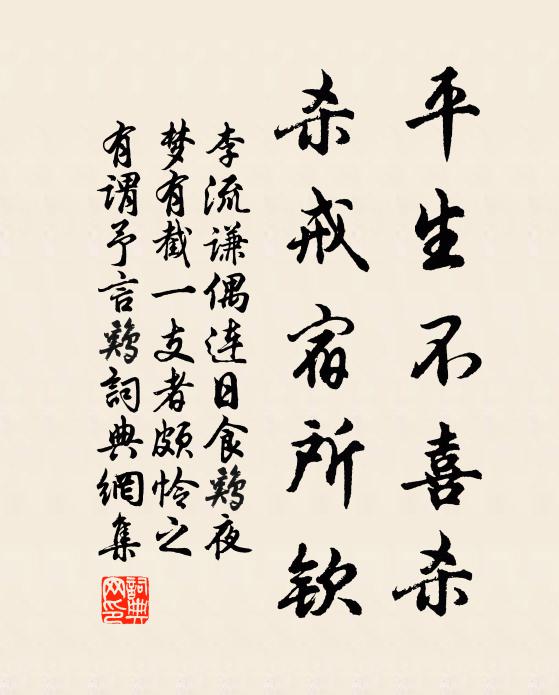 平生不喜杀
杀戒宿所钦
李流谦偶连日食鸡夜
梦有截一支者颇怜之
有谓予言鸡詞典網集
詞典网印